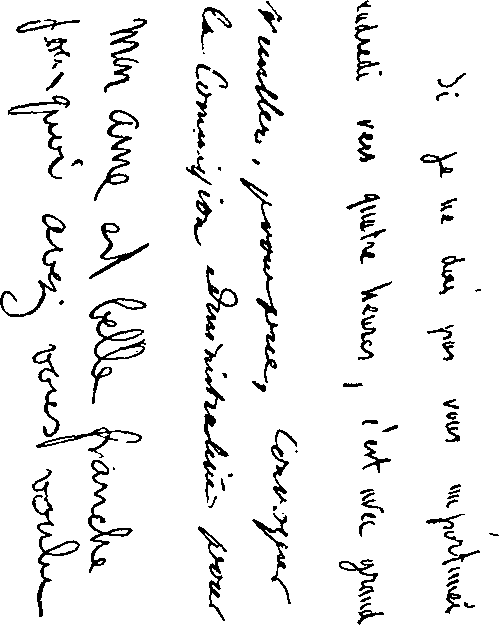 Si je ne dois pas vous importuner
vendredi vers quatre heures, c'est avec grand
Veuillez, convoquer
la Commission administrative pour
Mon ame est belle franche
pourquoi avez vous voulu